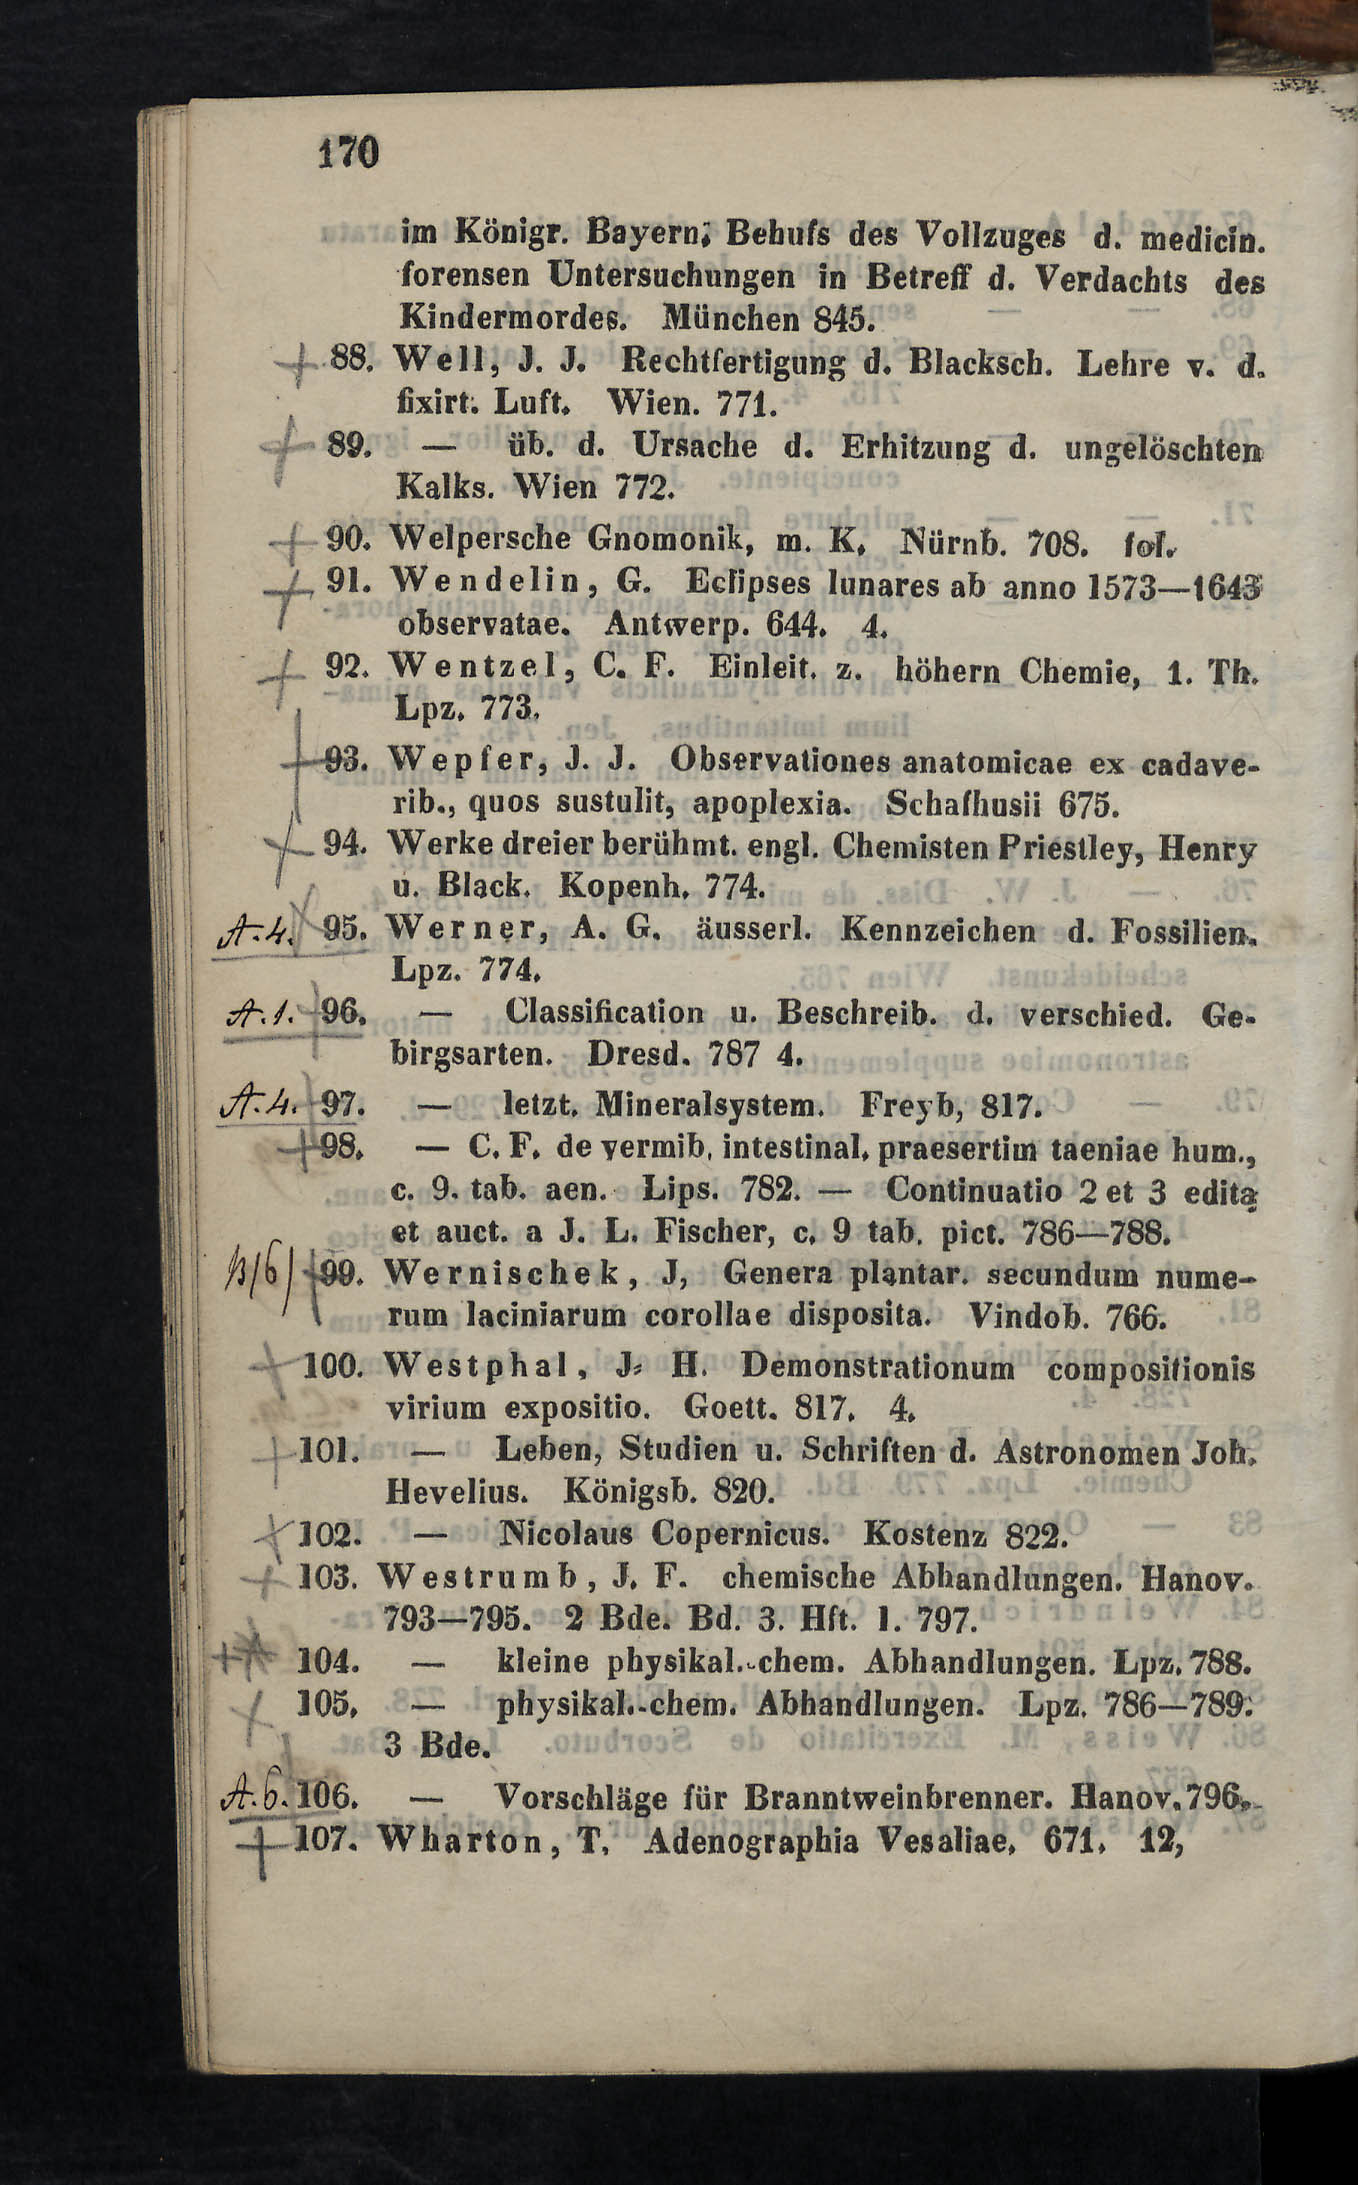 170
im Königr. Bayern; Behufs des Vollzuges d. medicin.
forensen Untersuchungen in Betreff d. Verdachts des
Kindermordes. München 845.
88. Well, J. J. Rechtfertigung d. Blacksch. Lehre v. d.
fixirt. Luft. Wien. 771.
89. — üb. d. Ursache d. Erhitzung d. ungelöschten
Kalks. Wien 772.
90. Welpersche Gnomonik, m. K. Nürnb. 708. fol.
91. Wendelin, G. Eclipses lunares ab anno 1573—1643
observatae. Antwerp. 644. 4.
92. Wentzel, C. F. Einleit. z. höhern Chemie, 1. Th.
Lpz. 773.
93. Wepfer, J. J. Observationes anatomicae ex cadave-
rib., quos sustulit, apoplexia. Schafhusii 675.
94. Werke dreier berühmt. engl. Chemisten Priestley, Henry
u. Black. Kopenh. 774.
A.4. 95. Werner, A. G. äusserl. Kennzeichen d. Fossilien.
Lpz. 774.
A.1. 96. — Classification u. Beschreib. d. verschied. Ge-
birgsarten. Dresd. 787 4.
A.4. 97. — letzt. Mineralsystem. Freyb, 817.
98. — C. F. de vermib. intestinal. praesertim taeniae hum.,
c. 9. tab. aen. Lips. 782. — Continuatio 2 et 3 edita
et auct. a J. L. Fischer, c. 9 tab. pict. 786—788.
B/6/ 99. Wernischek, J, Genera plantar. secundum nume-
rum laciniarum corollae disposita. Vindob. 766.
100. Westphal, J. H. Demonstrationum compositionis
virium expositio. Goett. 817. 4.
101. — Leben, Studien u. Schriften d. Astronomen Joh.
Hevelius. Königsb. 820.
102. — Nicolaus Copernicus. Kostenz 822.
103. Westrumb, J. F. chemische Abhandlungen. Hanov.
793—795. 2 Bde. Bd. 3. Hft. 1. 797.
104. — kleine physikal.-chem. Abhandlungen. Lpz. 788.
105. — physikal.-chem. Abhandlungen. Lpz. 786—789.
3 Bde.
A.6. 106. — Vorschläge für Branntweinbrenner. Hanov. 796.
107. Wharton, T. Adenographia Vesaliae. 671. 12,